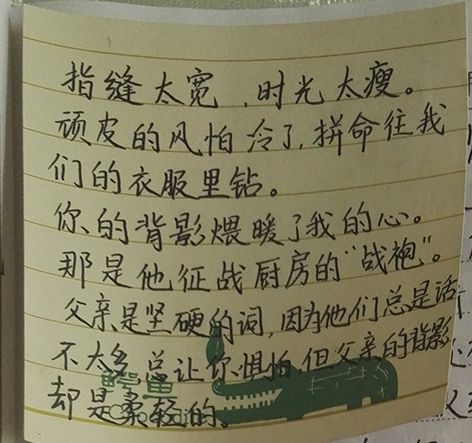 指缝太宽，时光太瘦。
顽皮的风怕冷了，拼命往我
们的衣服里钻。
你的背影煨暖了我的心。
那是他征战厨房的“战袍”。
父亲是坚硬的词，因为他们总是话
不太多，总让你惧怕，但父亲的背影
却是柔轻的。
鳄鱼